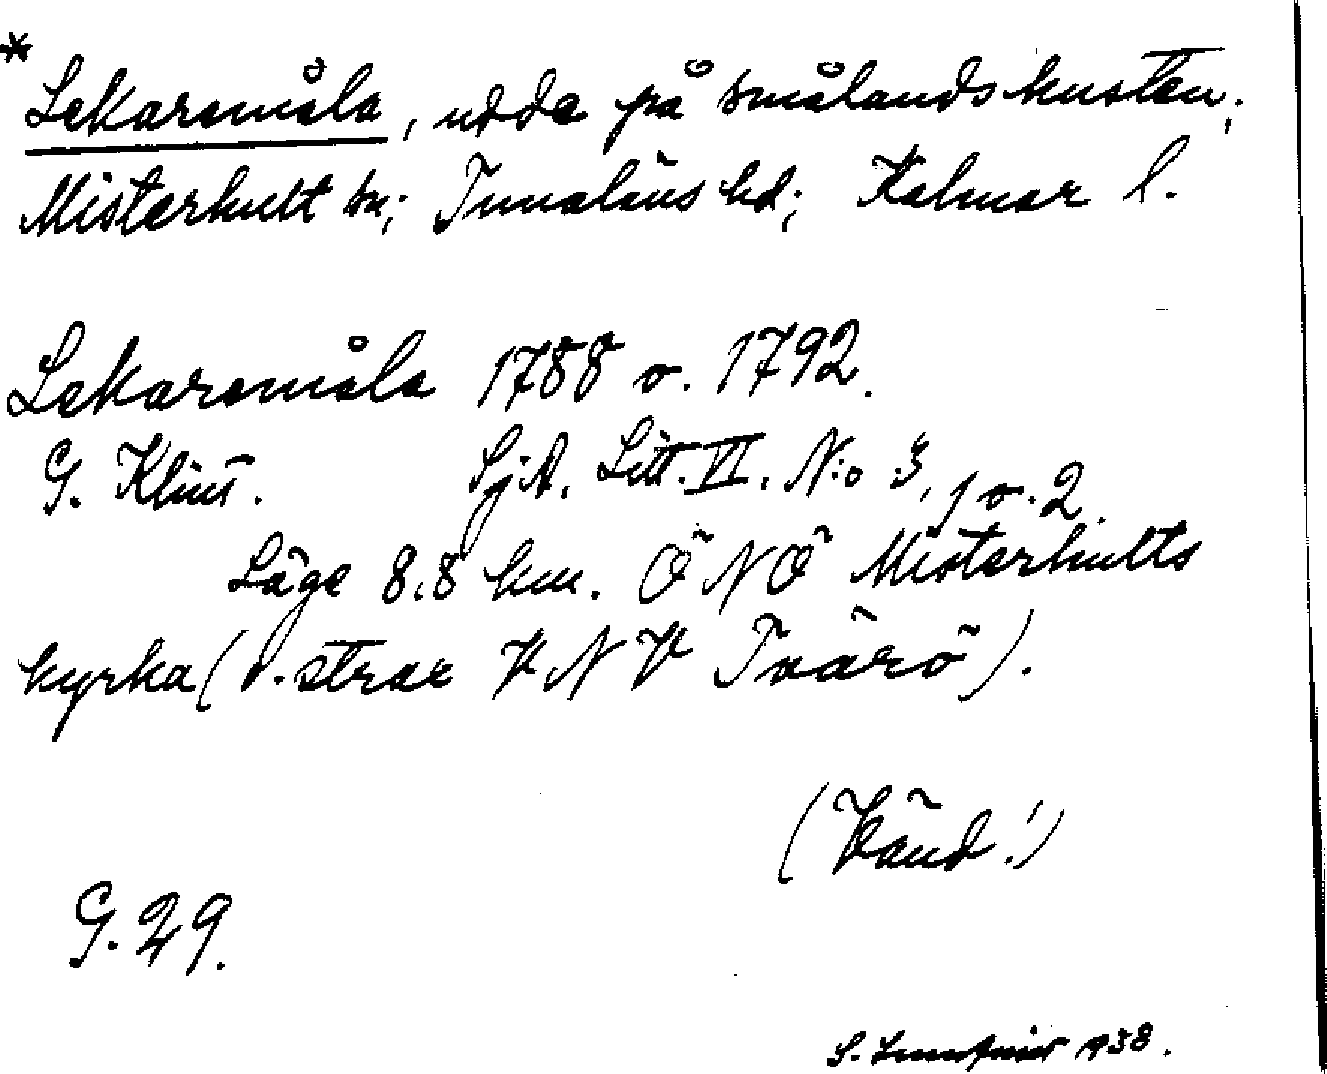 * Lekaremåla, udde på Smålandskusten;
Misterhult sn; Tunaläns hd; Kalmar l.
Lekaremåla 1788 o. 1792.
G. Klint. SjA. Litt. VI. N:o 3, 1 o. 2.
Läge 8.8 km. ÖNÖ Misterhults
kyrka (v. strax VNV Tvärö).
(Vänd!)
G. 29.
S. 1938.